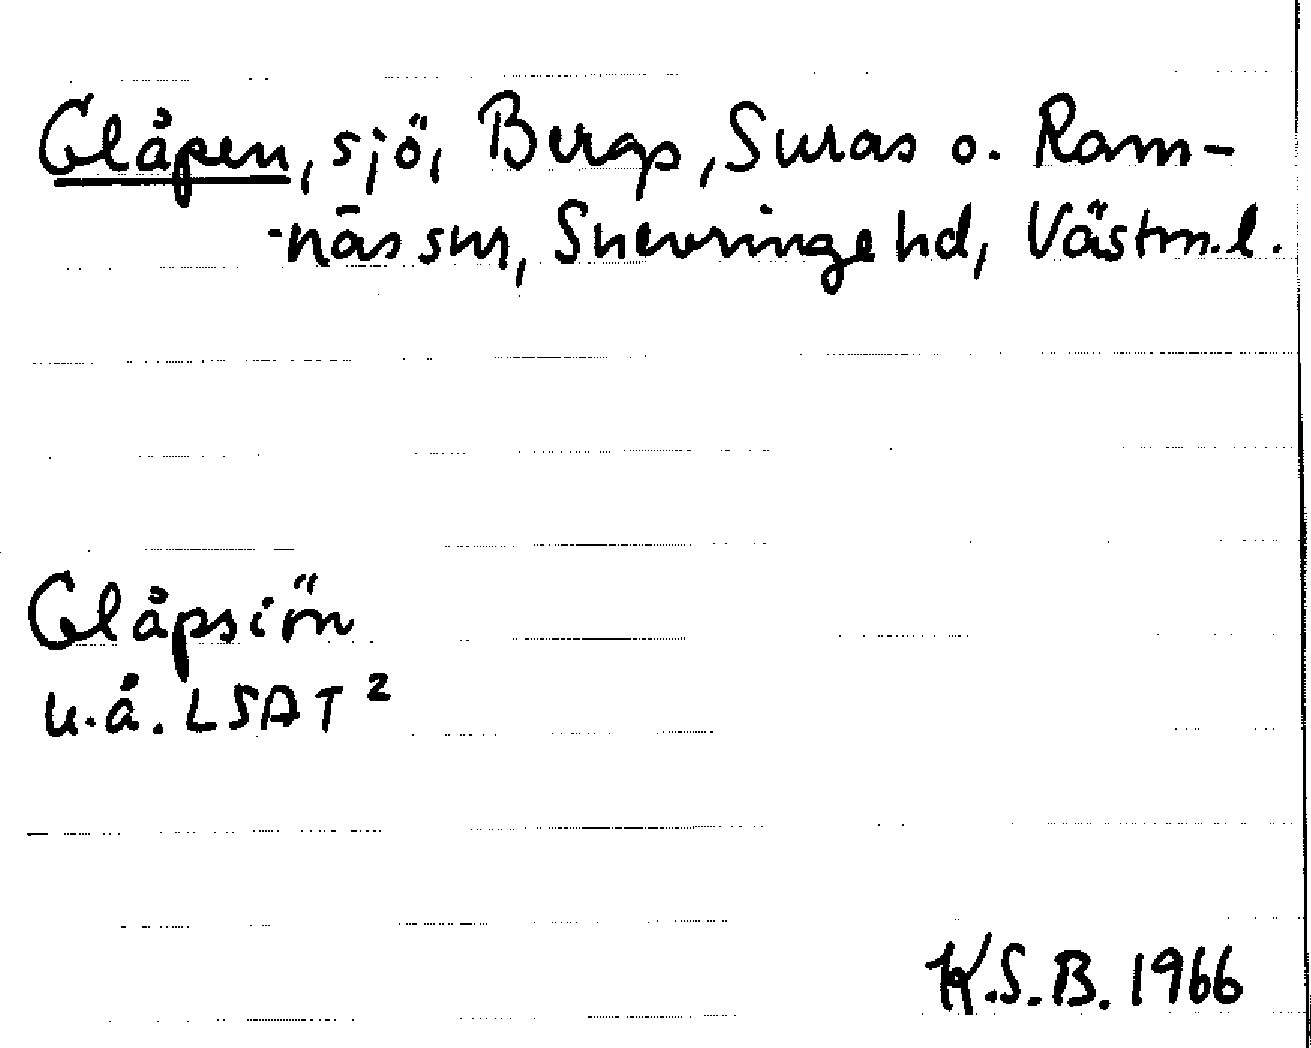 Glåpen, sjö, Bergs, Suras o. Ram-
-näs snr, Snevringe hd, Västm.l.
Glåpsiön
u.å. LSA T²
K.S.B. 1966